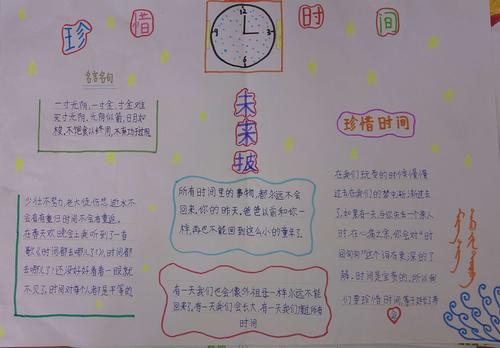 珍惜时间
名言名句
一寸光阴,一寸金,寸金难
买寸光阴,光阴似箭,日月如
梭,不饱食以终日,不弃功于
少壮不努力,老大徒伤悲,逝水不
会有春重归时间不会有重返。
在春天欢晚会上我听到了一首
歌《时间都去哪儿了》,时间都
去哪儿了!还没好好看看一眼就
不见了,时间对每个人都是平等的
未来披
所有时间里的事物,都永远不会
回来,你的昨天,爸爸以前和你一
样,再也不能回到这么小的童年了。
有一天我们也会像外祖母一样永远不能
回来了,有一天我们会长大,有一天我们度过所有
时间
珍惜时间
在我们玩耍的时候慢慢
过去在我们的梦中渐渐过去
了,如果有一天,当你失去一个亲人
时,在心痛之余,你会对“时
间匆匆”这个词有更深的了
解,时间是宝贵的,所以我
们要珍惜时间,